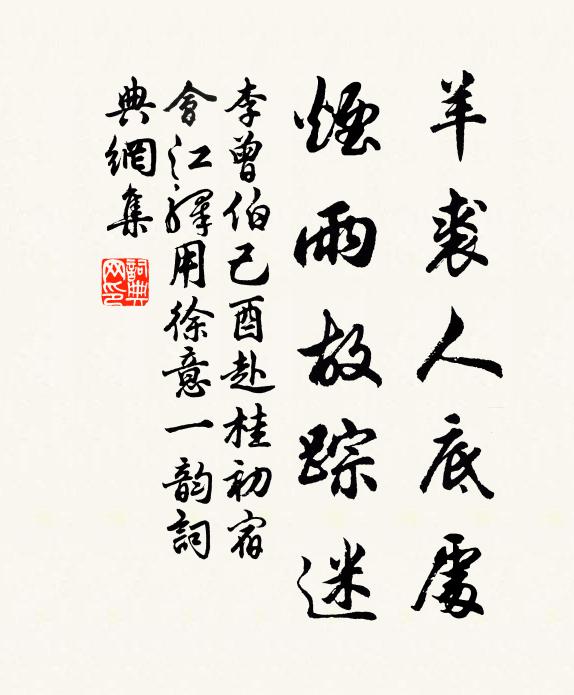 羊裘人底處
煙雨故踪迷
李曾伯己酉赴桂初宿
會江驛用徐意一韵詞
典網集
詞典网印